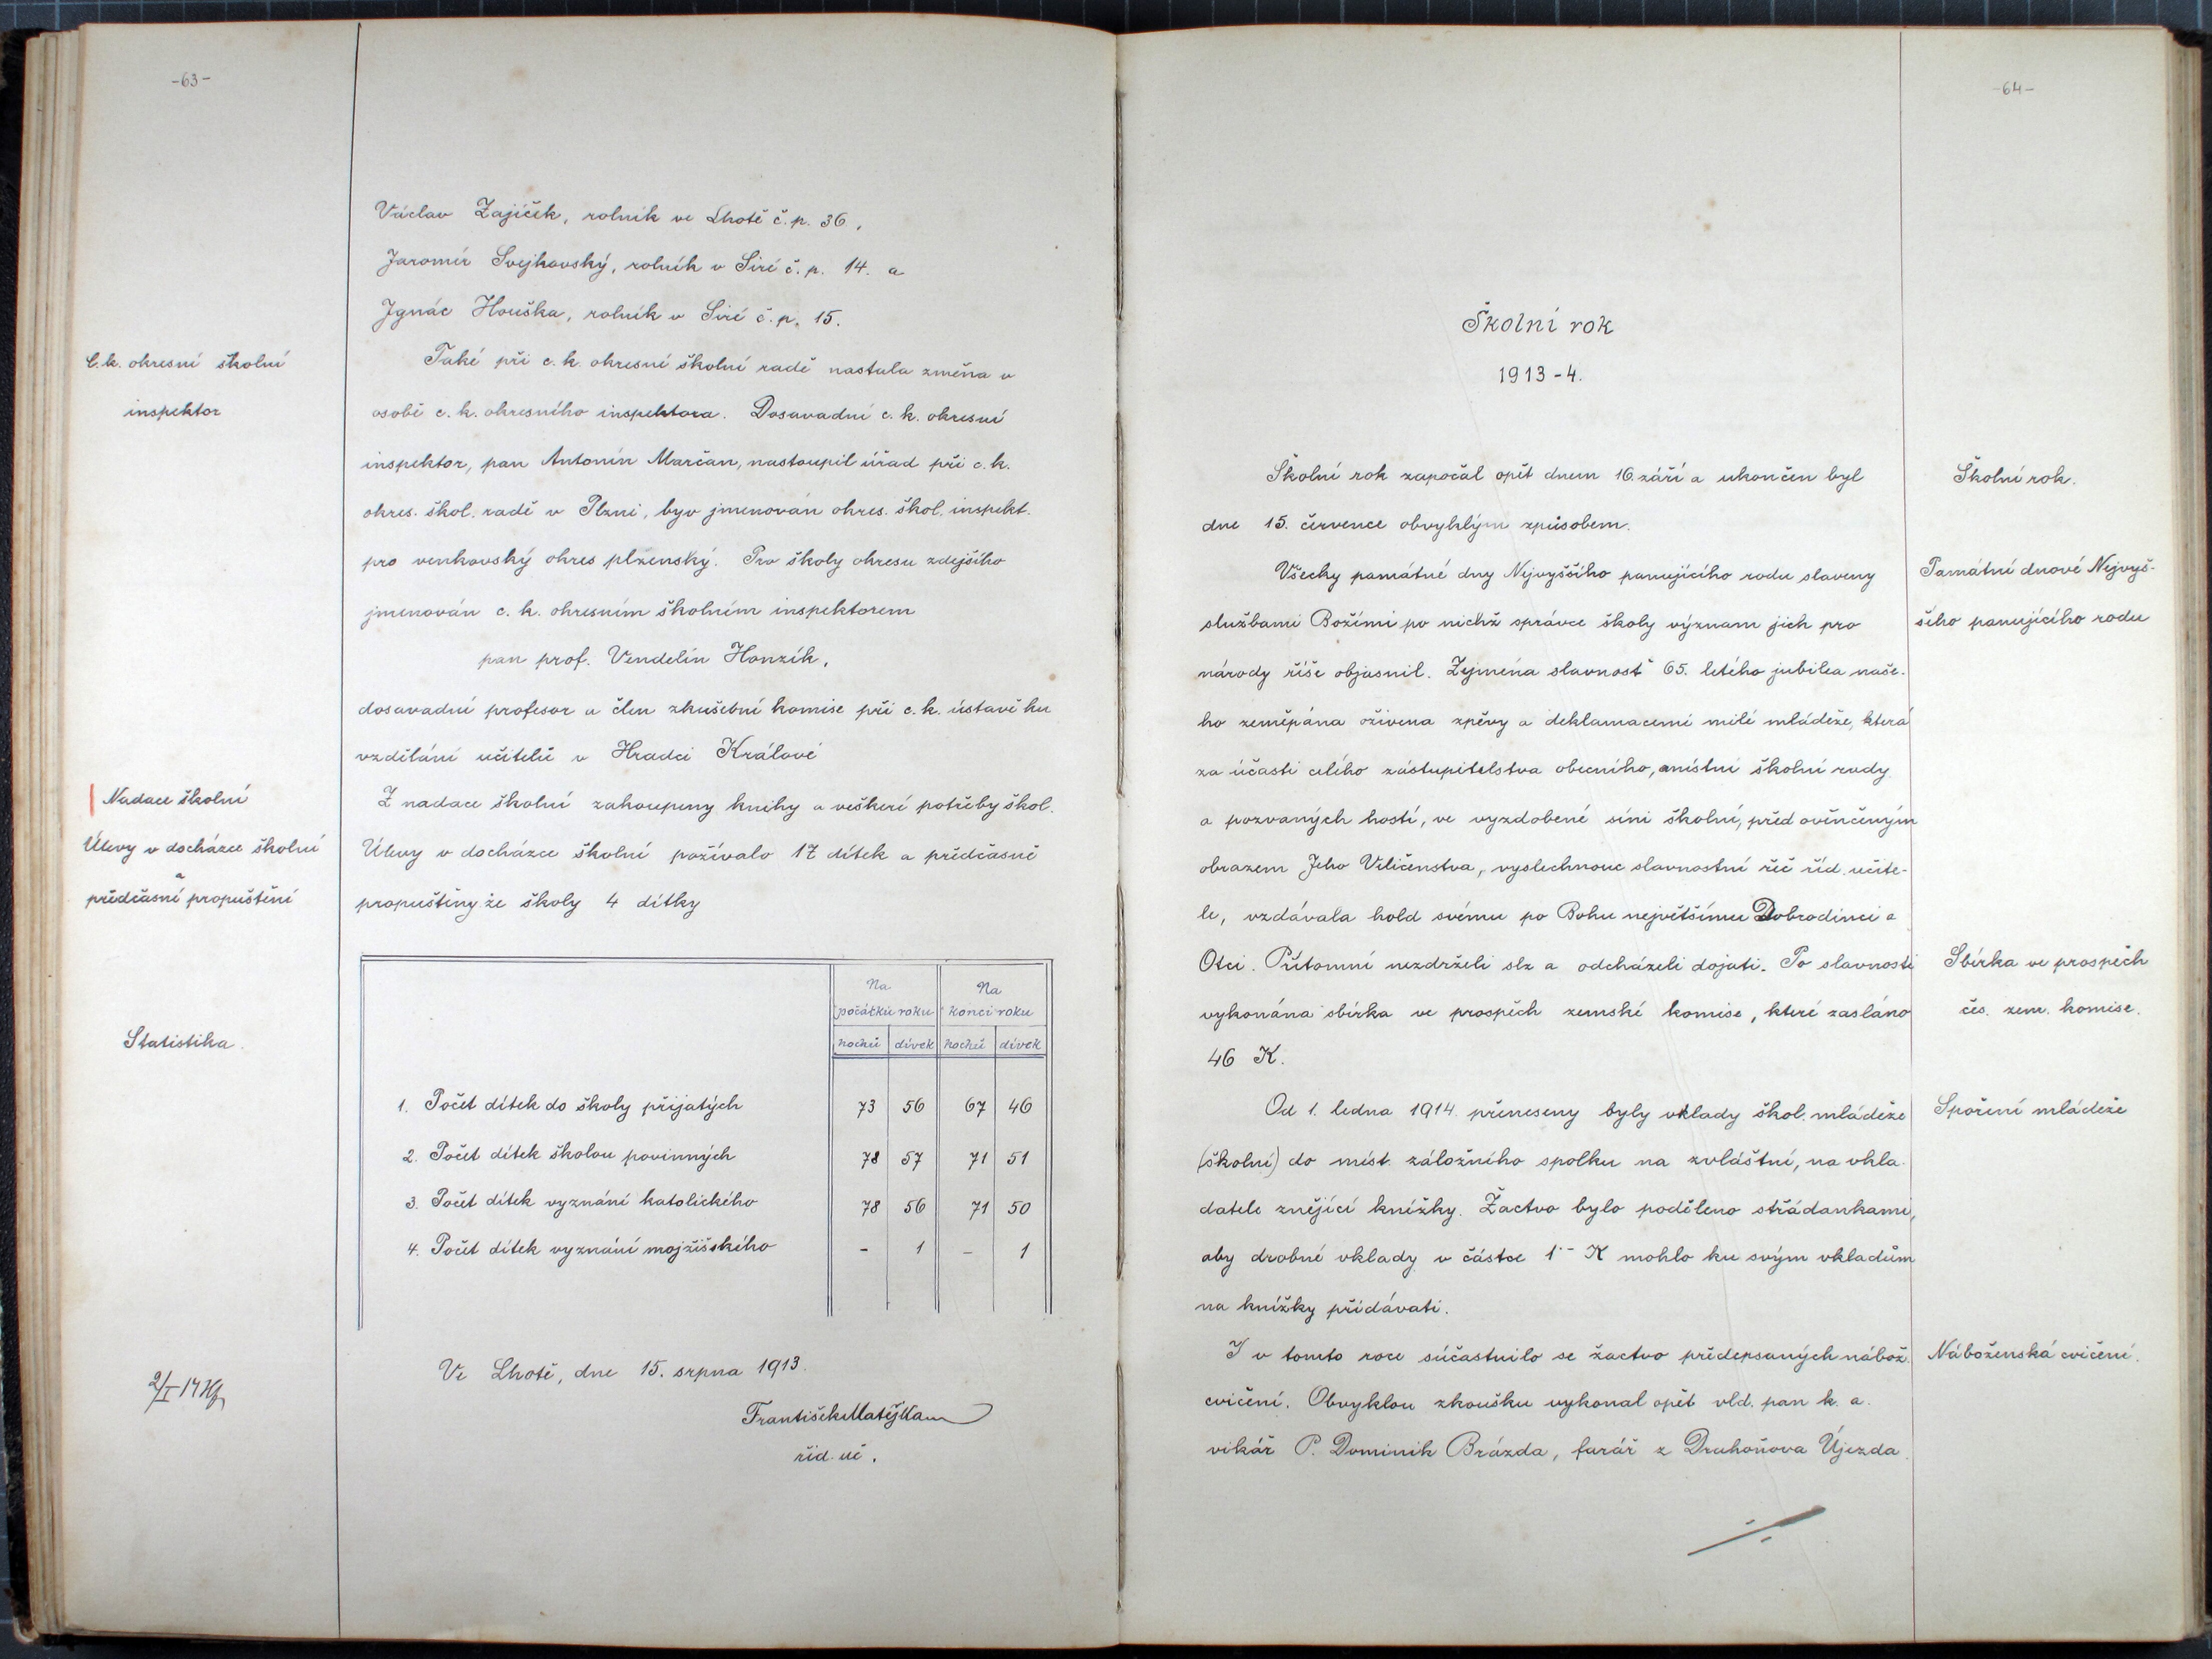 -63-
Václav Zajíček, rolník ve Lhotě č.p. 36,
Jaromír Svejkovský, rolník v Siré č.p. 14. a
Ignác Houška, rolník v Siré č.p. 15.
C.k. okresní školní
inspektor
Také při c.k. okresní školní radě nastala změna v
osobě c.k. okresního inspektora. Dosavadní c.k. okresní
inspektor, pan Antonín Marčan, nastoupil úřad při c.k.
okres. škol. radě v Plzni, byv jmenován okres. škol. inspekt.
pro venkovský okres plzenský. Pro školy okresu zdejšího
jmenován c.k. okresním školním inspektorem
pan prof. Vendelín Honzík,
dosavadní profesor a člen zkušební komise při c.k. ústavě ku
vzdělání učitelů v Hradci Králové
Nadace školní
Z nadace školní zakoupeny knihy a veškeré potřeby škol.
Úlevy v docházce školní
a
předčasné propuštění
Úlevy v docházce školní požívalo 17 dítek a předčasně
propuštěny ze školy 4 dítky
Statistika.
Na počátku roku Na konci roku
hochů dívek hochů dívek
1. Počet dítek do školy přijatých 73 56 67 46
2. Počet dítek školou povinných 78 57 71 51
3. Počet dítek vyznání katolického 78 56 71 50
4. Počet dítek vyznání mojžíšského - 1 - 1
Ve Lhotě, dne 15. srpna 1913.
František Matějka
říd. uč.
2/I 14
-64-
Školní rok
1913-4.
Školní rok započal opět dnem 16. září a ukončen byl
dne 15. července obvyklým způsobem.
Školní rok.
Všecky památné dny Nejvyššího panujícího rodu slaveny
službami Božími po nichž správce školy význam jich pro
národy říše objasnil. Zejména slavnosť 65. letého jubilea naše-
ho zeměpána oživena zpěvy a deklamacemi milé mládeže, která
za účasti celého zastupitelstva obecního, místní školní rady
a pozvaných hostí, ve vyzdobené síni školní, před ověnčeným
obrazem Jeho Veličenstva, vyslechnouc slavnostní řeč říd. učite-
le, vzdávala hold svému po Bohu největšímu Dobrodinci a
Otci. Přítomní nezdrželi slz a odcházeli dojati. Po slavnosti
vykonána sbírka ve prospěch zemské komise, které zasláno
46 K.
Památní dnové Nejvyš-
šího panujícího rodu
Sbírka ve prospěch
čes. zem. komise.
Od 1. ledna 1914. přeneseny byly vklady škol. mládeže
(školní) do míst. záložního spolku na zvláštní, na vkla-
datele znějící knížky. Žactvo bylo poděleno střádankami,
aby drobné vklady v částce 1·- K mohlo ku svým vkladům
na knížky přidávati.
Spoření mládeže
I v tomto roce súčastnilo se žactvo předepsaných nábož.
cvičení. Obvyklou zkoušku vykonal opět vld. pan k. a.
vikář P. Dominik Brázda, farář z Drahoňova Újezda.
Náboženská cvičení.